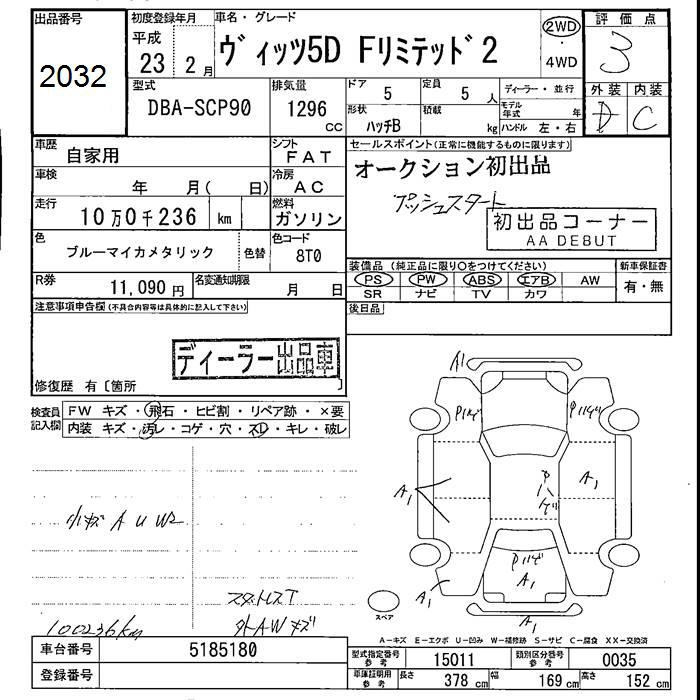 出品番号
2032
初度登録年月
平成
23 2 月
車名・グレード
ヴィッツ5D Fリミテッド2
2WD
・
4WD
評価点
3
外装 内装
D C
型式
DBA-SCP90
排気量
1296
CC
ドア
5
形状
ハッチB
定員
5 人
積載
kg
ディーラー・並行
モデル年式 年
ハンドル 左・右
車歴
自家用
シフト
FAT
車検
年 月( 日)
冷房
AC
走行
10万0千236 km
燃料
ガソリン
色
ブルーマイカメタリック
色替
色コード
8T0
R券
11,090 円
名変通知期限
月 日
セールスポイント(正常に機能するものに限ります)
オークション初出品
プッシュスタート
初出品コーナー
AA DEBUT
装備品 (純正品に限り〇をつけてください)
PS PW ABS エアB AW
SR ナビ TV カワ
新車保証書
有・無
後日品
注意事項申告欄(不具合内容等は具体的に記入して下さい)
ディーラー出品車
修復歴 有〔箇所 〕
検査員
記入欄
FW キズ・飛石・ヒビ割・リペア跡・×要
内装 キズ・汚レ・コゲ・穴・スレ・キレ・破レ
小キズ A U W2
スタットレスT
外AWキズ
100236km
A1
A1
A1
A1
A1
A1
スペア
A-キズ E-エクボ U-凹み W-補修跡 S-サビ C-腐食 XX-交換済
車台番号
5185180
登録番号
型式指定番号
参考
15011
類別区分番号
参考
0035
車庫証明用
参考
長さ
378 cm
幅
169 cm
高さ
152 cm